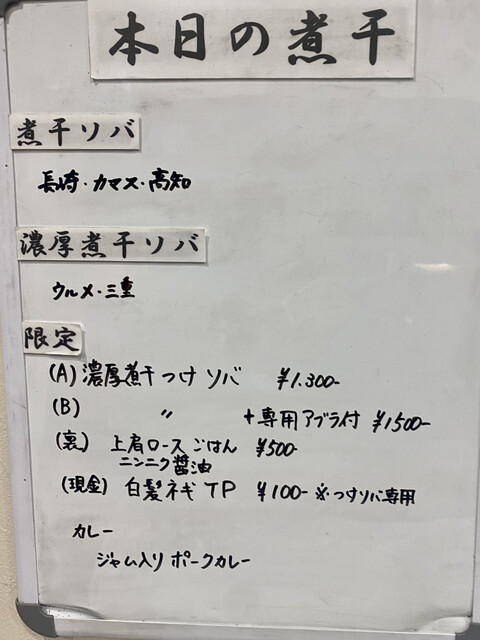 本日の煮干
煮干ソバ
長崎・カマス・高知
濃厚煮干ソバ
ウルメ・三重
限定
(A) 濃厚煮干つけソバ ¥1.300-
(B) 〃 +専用アブラ付 ¥1500-
(裏) 上肩ロースごはん ¥500-
ニンニク醤油
(現金) 白髪ネギTP ¥100- ※つけソバ専用
カレー
ジャム入りポークカレー